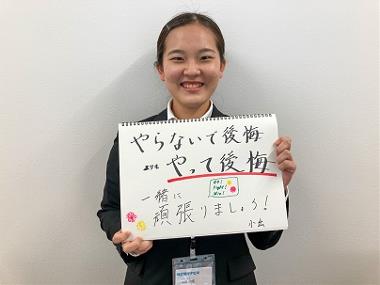 やらないで後悔
よりも やって後悔
一緒に
頑張りましょう!